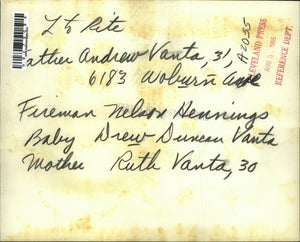 L to Rite
ather Andrew Vanta, 31,
6183 Woburn Ave
Fireman Nelson Hennings
Baby Drew Duncan Vanta
Mother Ruth Vanta, 30
A2035
CLEVELAND PRESS
AUG
REFERENCE DEPT.